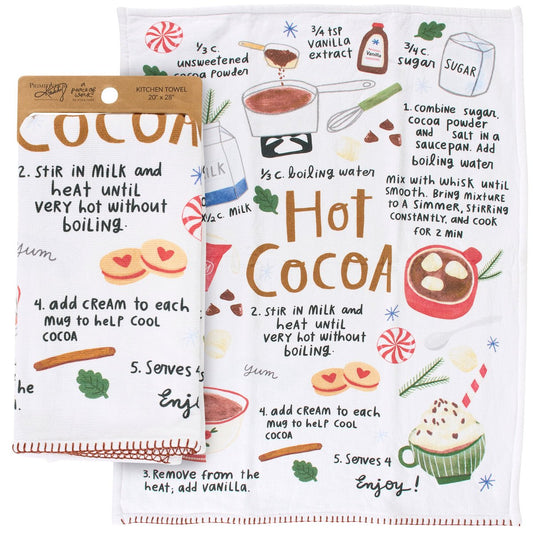 Primitives by Kathy
a pinch of
KITCHEN TOWEL
20" x 28"
COCOA
2. Stir in Milk and
heat until
very hot without
boiling.
yum
4. add cream to each
mug to help cool
cocoa
5. Serves 4
Enj
re from the
d vanilla.
1/3 c.
unsweetened
cocoa powder
3/4 tsp
vanilla
extract
3/4 c.
sugar
SUGAR
1. combine sugar,
cocoa powder
and salt in a
saucepan. Add
boiling water
1/3 c. boiling water
mix with whisk until
smooth. Bring mixture
to a simmer, stirring
constantly, and cook
for 2 min
1/2 c. milk
Hot
COCOA
2. Stir in Milk and
heat until
very hot without
boiling.
yum
4. add cream to each
mug to help cool
cocoa
5. Serves 4
Enjoy!
3. Remove from the
heat; add vanilla.